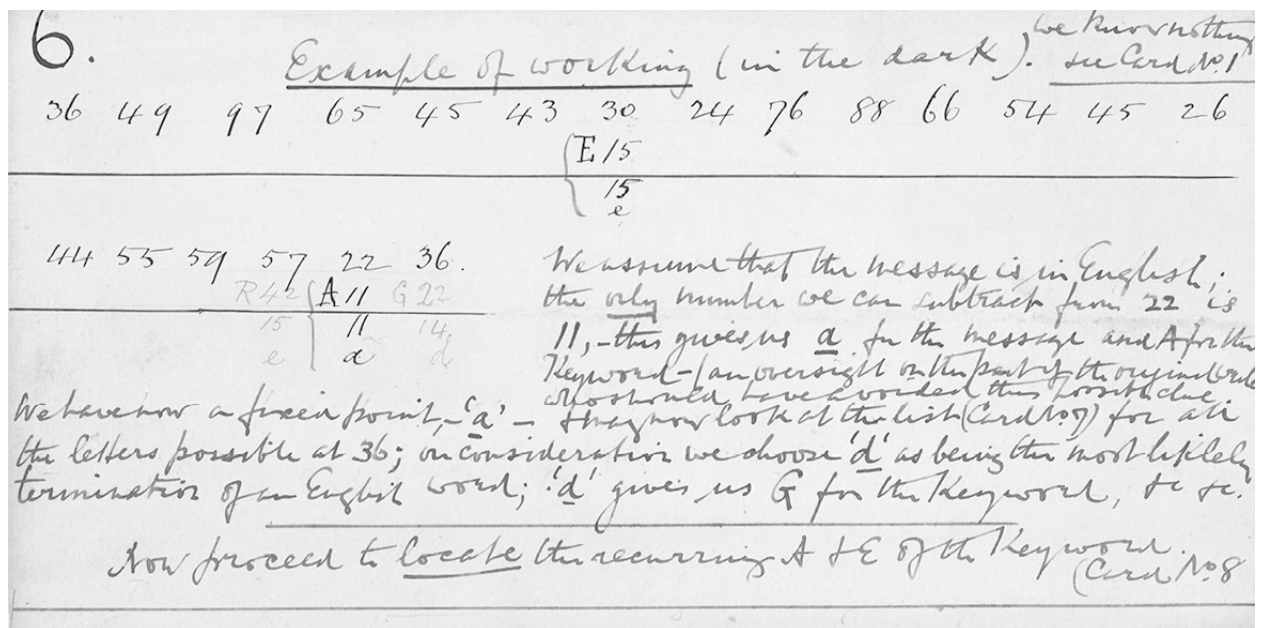 6.
we know nothing
Example of working (in the dark). see Card No. 1
36 49 97 65 45 43 30 24 76 88 66 54 45 26
E 15
15
e
44 55 59 57 22 36.
R 42 A 11 G 22
15 11 14
e a d
We assume that the message is in English;
the only number we can subtract from 22 is
11, - this gives us a for the message and A for the
Keyword - (an oversight on the part of the original
who should have avoided this possible clue
We have now a fixed point, - 'a' - & may now look at the list (Card No. 7) for all
the letters possible at 36; on consideration we choose 'd' as being the most likely
termination of an English word; 'd' gives us G for the Keyword, &c &c.
Now proceed to locate the recurring A & E of the Keyword.
(Card No. 8